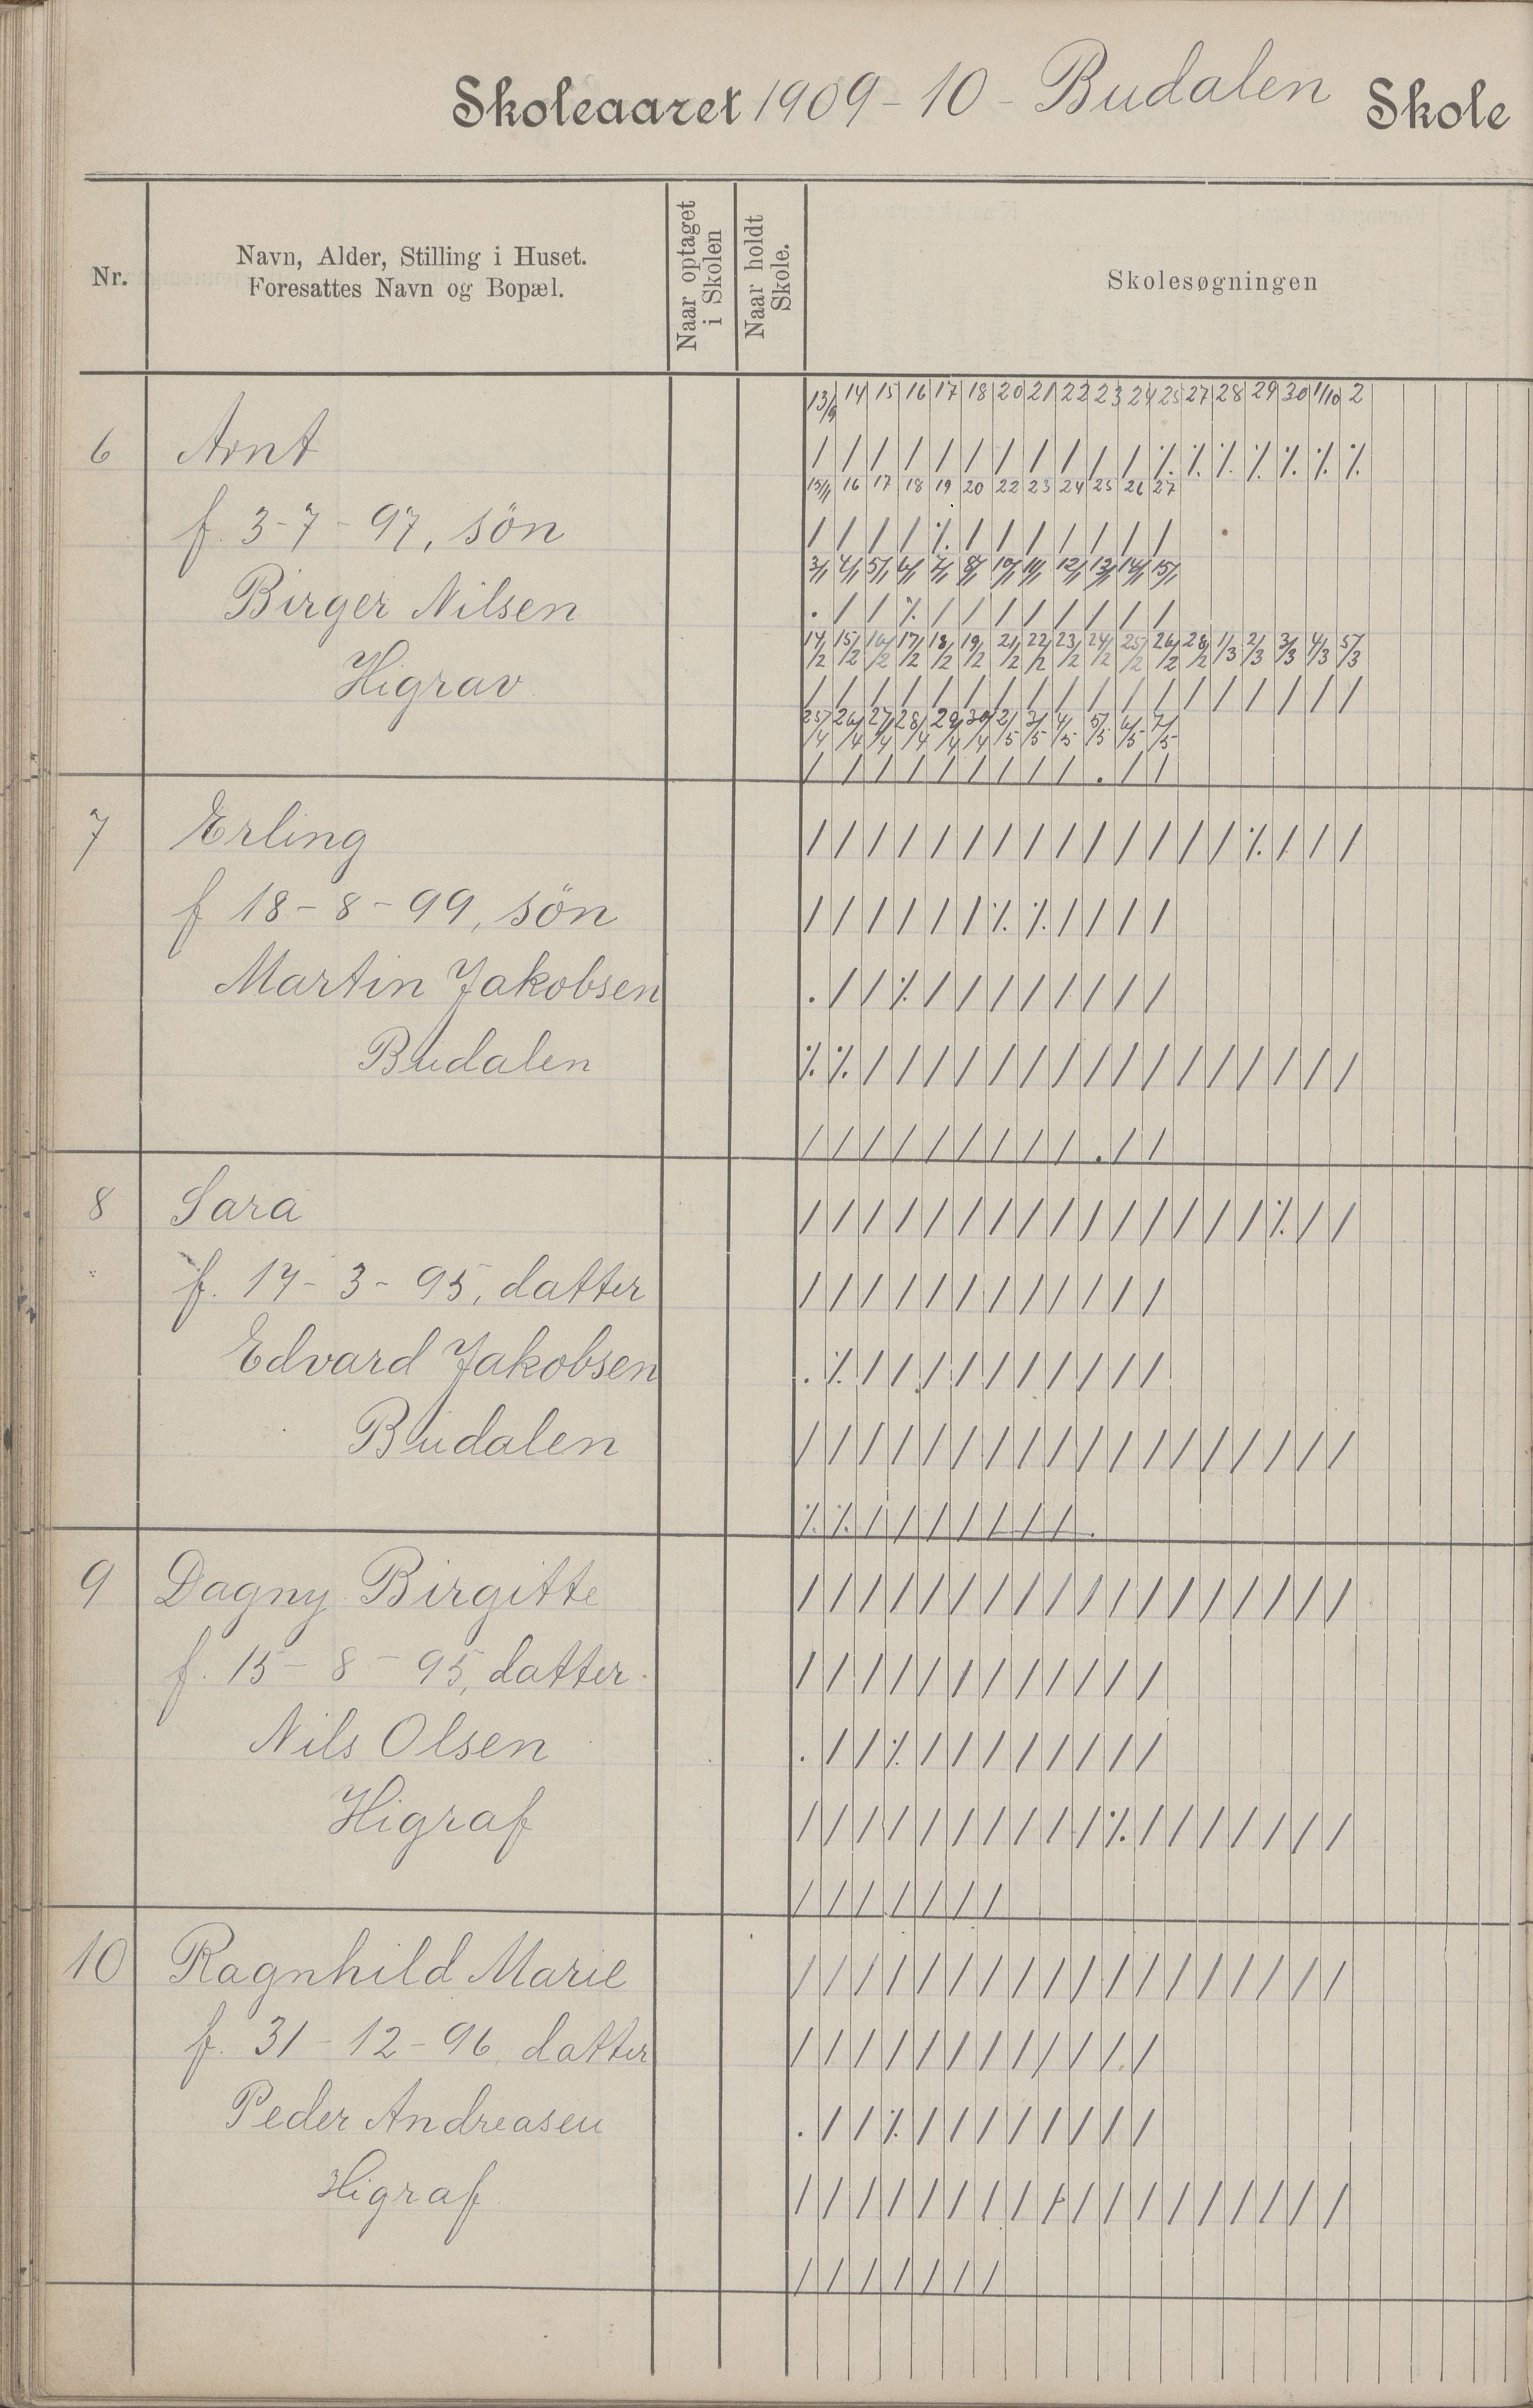 Skoleaaret 1909-10 - Budalen Skole
Nr.
Navn, Alder, Stilling i Huset.
Foresattes Navn og Bopæl.
Naar optaget
i Skolen
Naar holdt
Skole.
Skolesøgningen
13/9 14 15 16 17 18 20 21 22 23 24 25 27 28 29 30 1/10 2
6 Arnt
/ / / / / / / / / / / ٪ ٪ ٪ ٪ ٪ ٪ ٪
15/11 16 17 18 19 20 22 23 24 25 26 27
f. 3-7-97, sön
/ / / / ٪ / / / / / / /
3/1 4/1 5/1 6/1 7/1 8/1 10/1 11/1 12/1 13/1 14/1 15/1
Birger Nilsen
. / / ٪ / / / / / / / /
14/2 15/2 16/2 17/2 18/2 19/2 21/2 22/2 23/2 24/2 25/2 26/2 28/2 1/3 2/3 3/3 4/3 5/3
Higrav
/ / / / / / / / / / / / / / / / / /
25/4 26/4 27/4 28/4 29/4 30/4 2/5 3/5 4/5 5/5 6/5 7/5
/ / / / / / / / / . / /
7 Erling
/ / / / / / / / / / / / / / ٪ / / /
f 18-8-99, sön
/ / / / / / ٪ ٪ / / / /
Martin Jakobsen
. / / ٪ / / / / / / / /
Budalen
٪ ٪ / / / / / / / / / / / / / / / /
/ / / / / / / / / . / /
8 Sara
/ / / / / / / / / / / / / / / ٪ / /
f. 17-3-95, datter
/ / / / / / / / / / / /
Edvard Jakobsen
. ٪ / / / / / / / / / /
Budalen
/ / / / / / / / / / / / / / / / / /
٪ ٪ / / / / / / / .
9 Dagny Birgitte
/ / / / / / / / / / / / / / / / / /
f. 15-8-95, datter
/ / / / / / / / / / / /
Nils Olsen
. / / ٪ / / / / / / / /
Higraf
/ / / / / / / / / / ٪ / / / / / / /
/ / / / / / /
10 Ragnhild Marie
/ / / / / / / / / / / / / / / / / /
f. 31-12-96, datter
/ / / / / / / / / / / /
Peder Andreasen
. / / ٪ / / / / / / / /
Higraf
/ / / / / / / / / / / / / / / / / /
/ / / / / / /